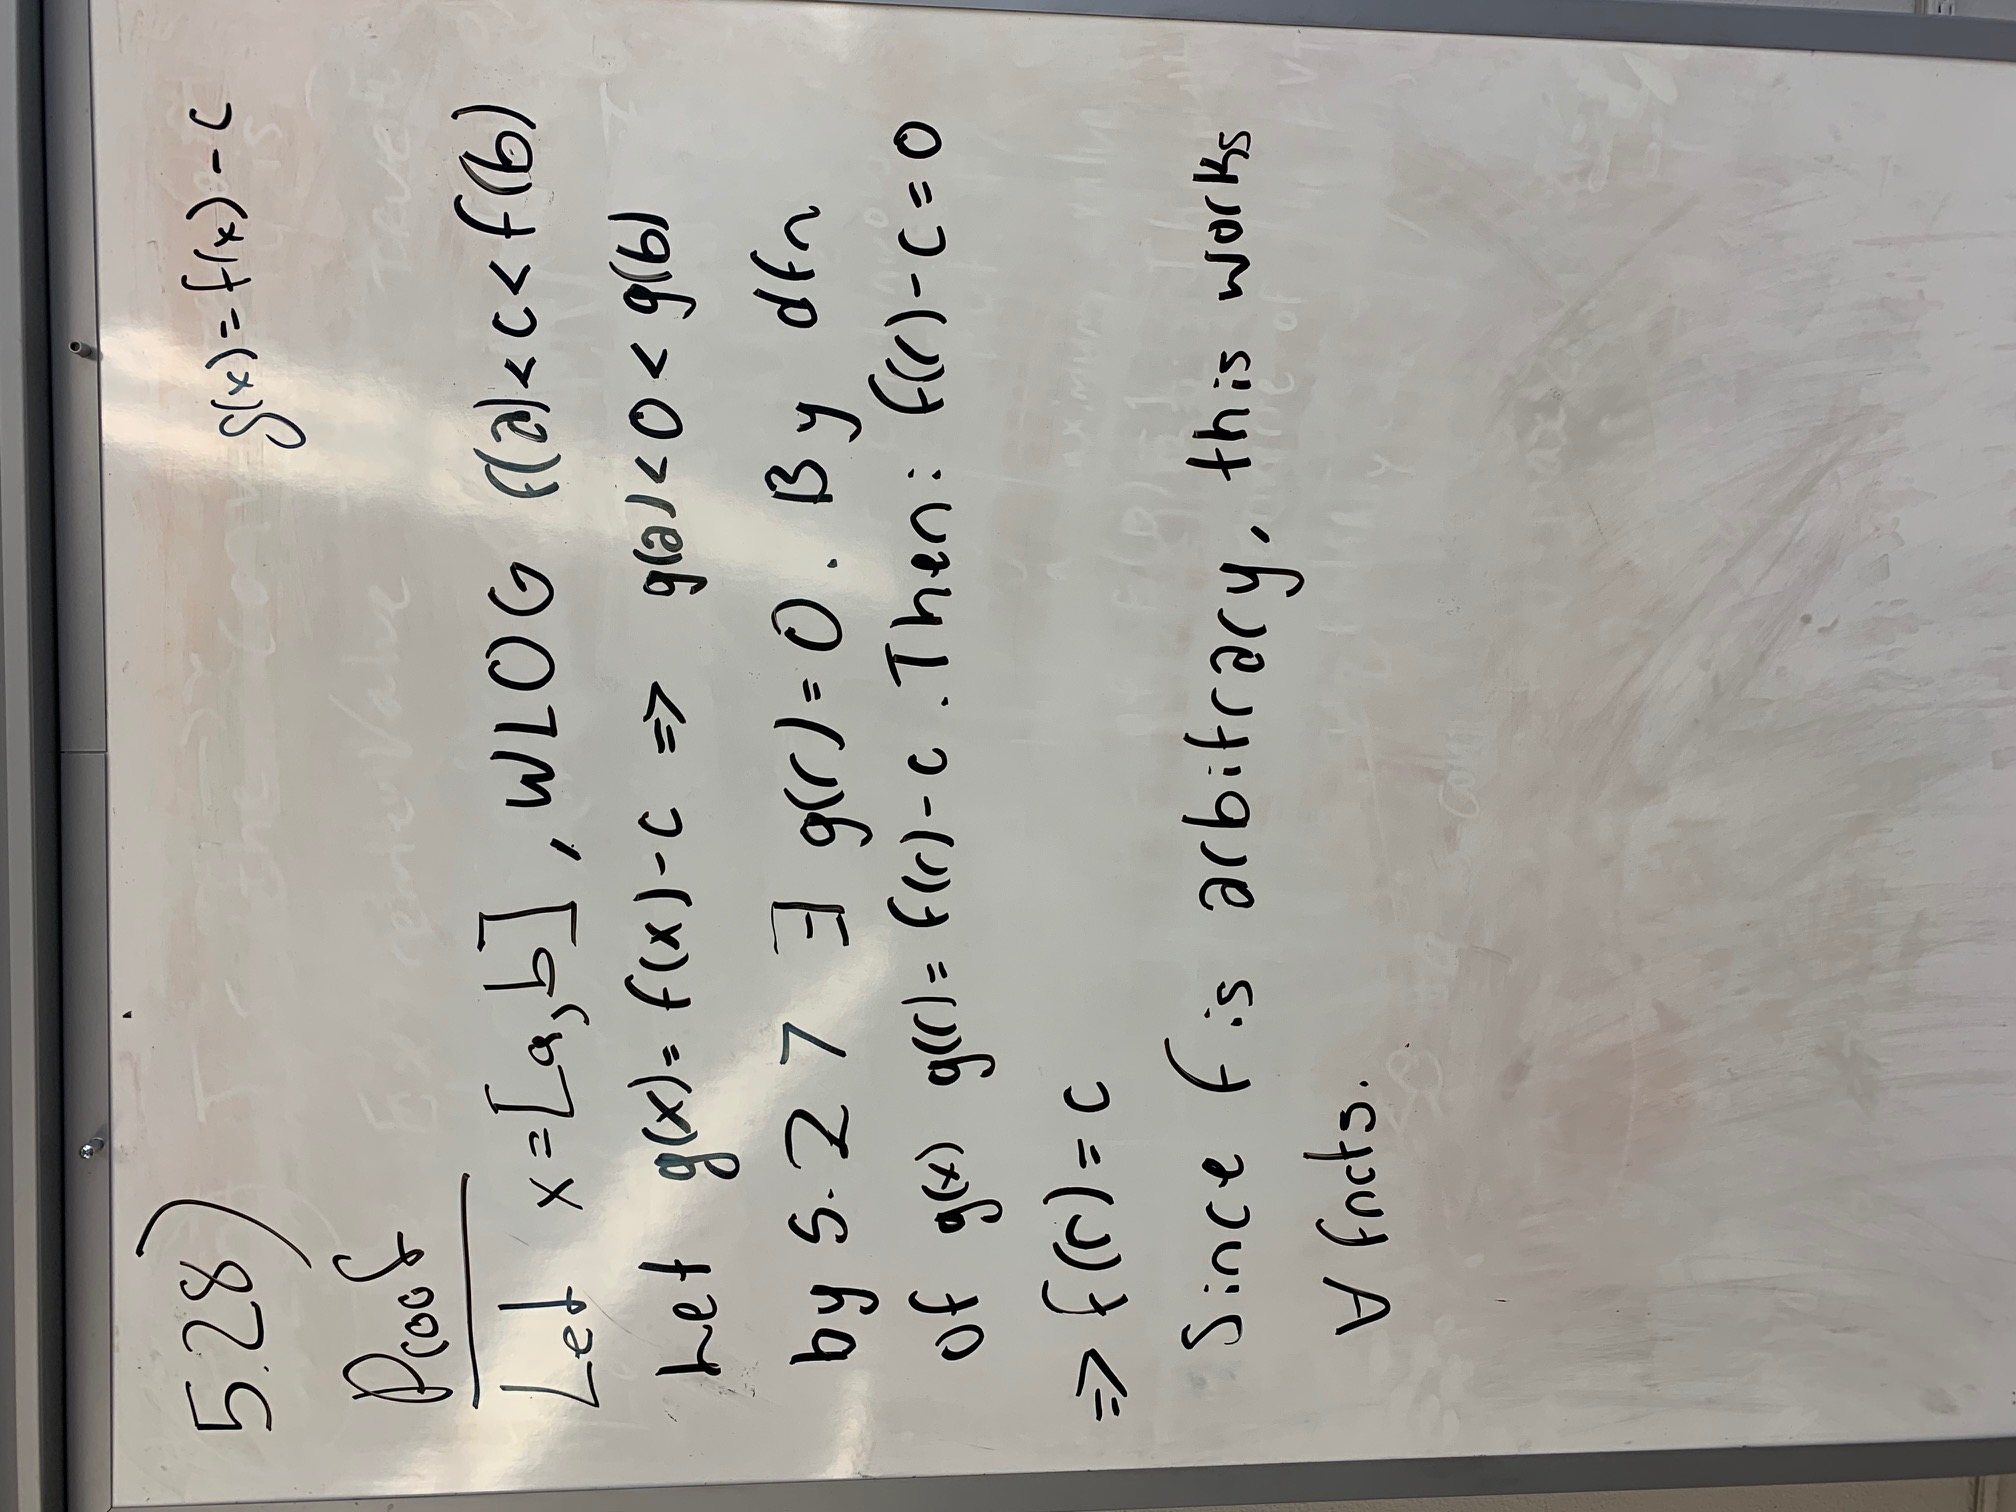 5.28)
g(x) = f(x) - c
Proof
Let x = [a, b], WLOG f(a) < c < f(b)
Let g(x) = f(x) - c => g(a) < 0 < g(b)
by 5.27 ∃ g(r) = 0. By dfn
of g(x) g(r) = f(r) - c. Then: f(r) - c = 0
=> f(r) = c
Since f is arbitrary, this works
∀ fncts.